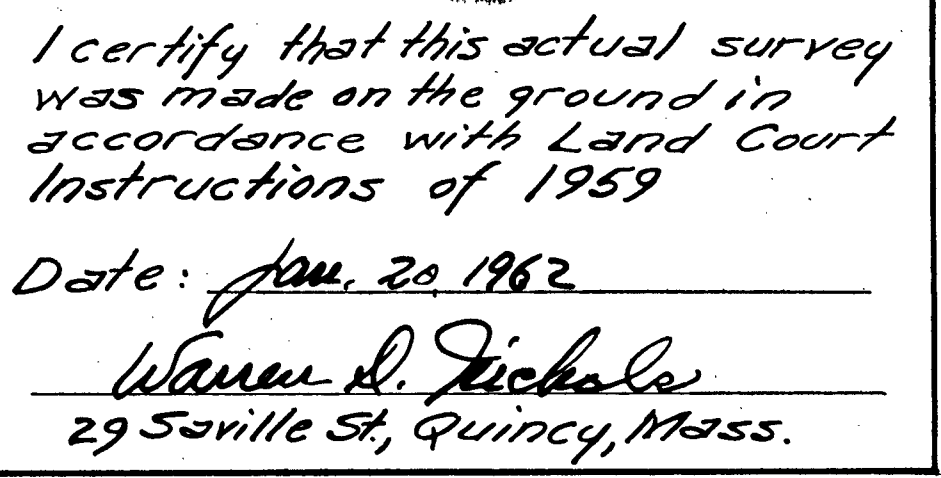 I certify that this actual survey
was made on the ground in
accordance with Land Court
Instructions of 1959
Date: Jan. 20, 1962
Warren D. Nichols
29 Saville St., Quincy, Mass.